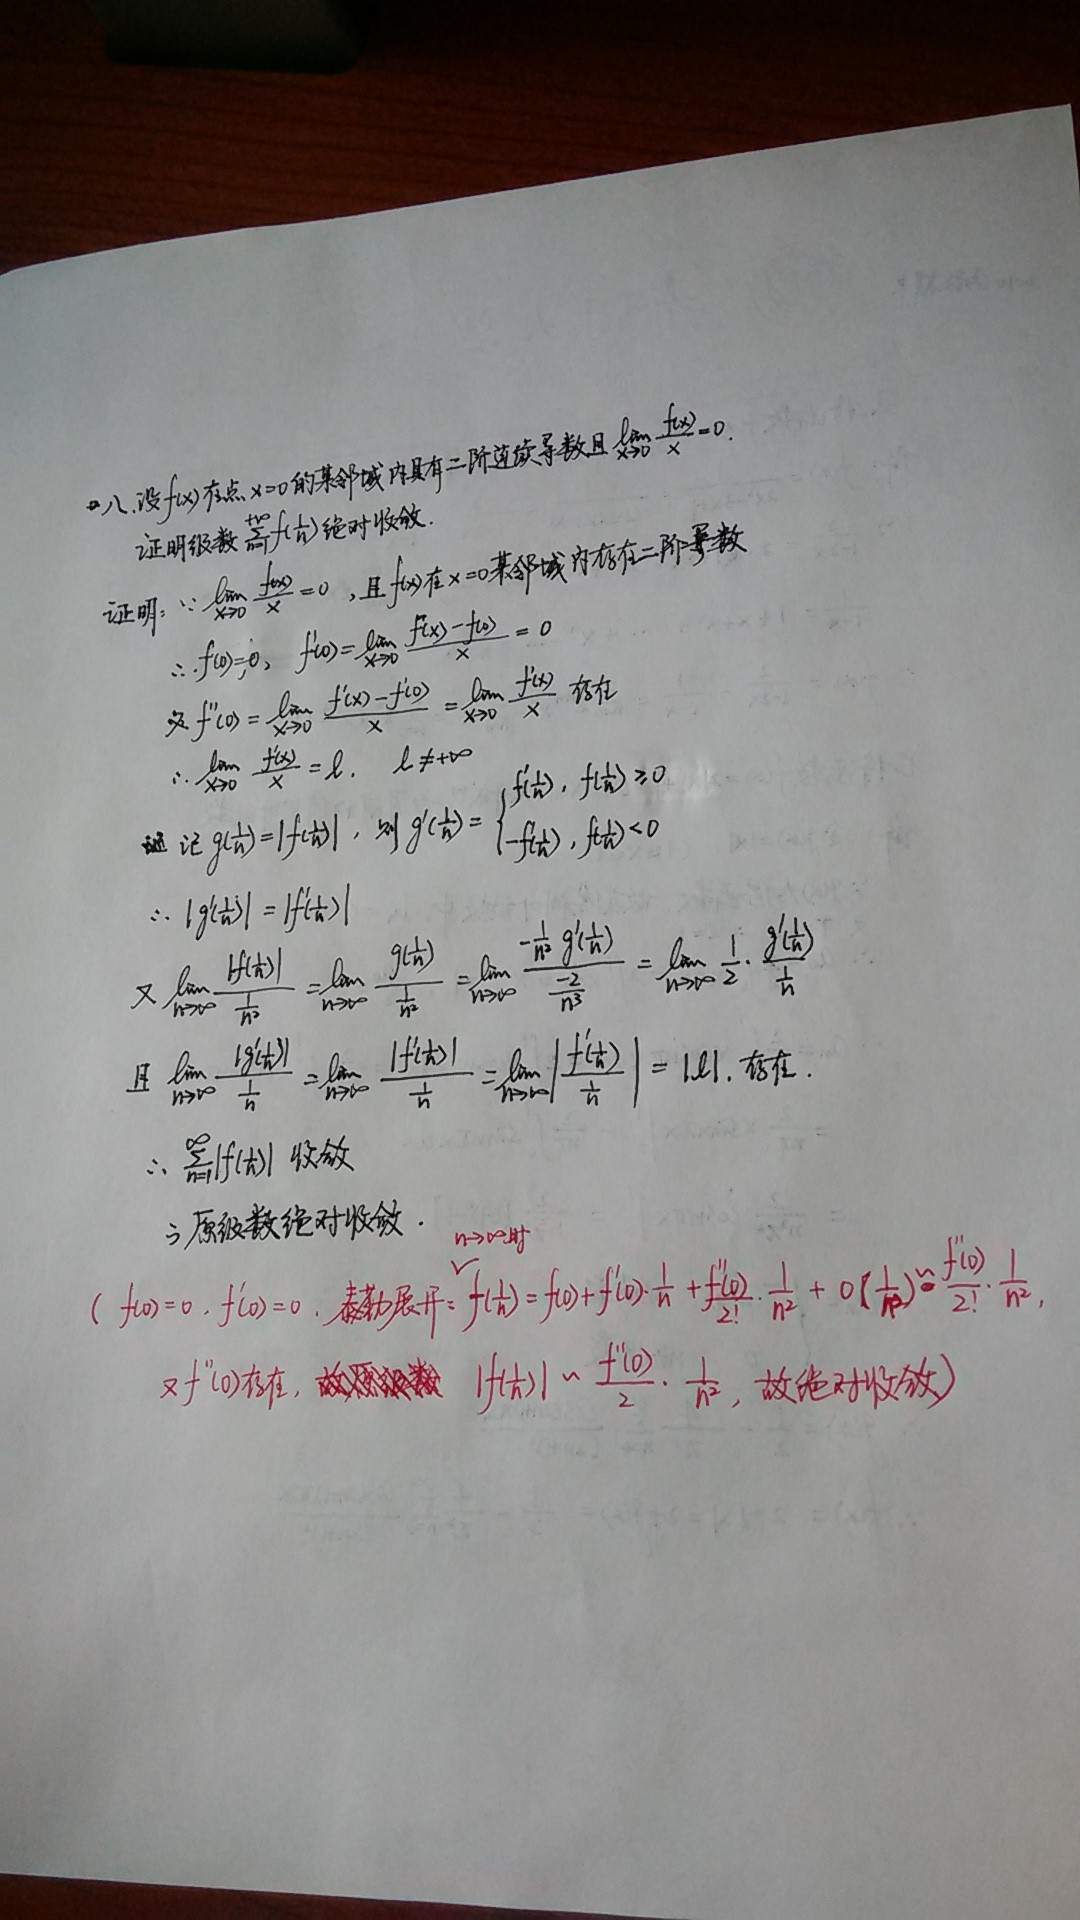 八.设f(x)在点x=0的某邻域内具有二阶连续导数且lim_{x→0} f(x)/x=0.
证明级数∑_{n=1}^{+∞}f(1/n)绝对收敛.
证明:∵lim_{x→0} f(x)/x=0,且f(x)在x=0某邻域内存在二阶导数
∴f(0)=0, f'(0)=lim_{x→0} (f(x)-f(0))/x=0
又f''(0)=lim_{x→0} (f'(x)-f'(0))/x=lim_{x→0} f'(x)/x 存在
∴lim_{x→0} f'(x)/x=l. l≠+∞
记g(1/n)=|f(1/n)|,则g'(1/n)={f'(1/n), f(1/n)≥0
-f'(1/n), f(1/n)<0
∴|g'(1/n)|=|f'(1/n)|
又lim_{n→∞} |f(1/n)|/(1/n²)=lim_{n→∞} g(1/n)/(1/n²)=lim_{n→∞} (-1/n² g'(1/n))/(-2/n³)=lim_{n→∞} 1/2·g'(1/n)/(1/n)
且lim_{n→∞} |g'(1/n)|/(1/n)=lim_{n→∞} |f'(1/n)|/(1/n)=lim_{n→∞}|f'(1/n)/(1/n)|=|l|.存在.
∴∑_{n=1}^{∞}|f(1/n)| 收敛
⇒原级数绝对收敛.
n→∞时
(f(0)=0.f'(0)=0.泰勒展开:f(1/n)=f(0)+f'(0)·1/n+f''(0)/2!·1/n²+o(1/n²)~f''(0)/2!·1/n²,
又f''(0)存在, |f(1/n)|~f''(0)/2·1/n²,故绝对收敛)